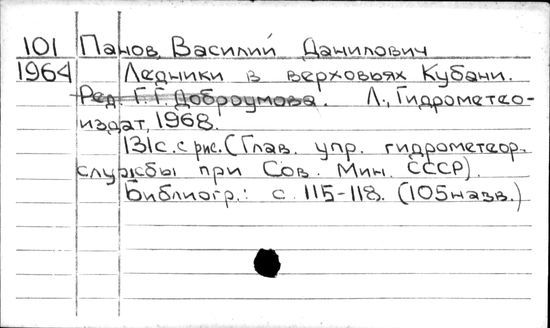 101 Панов, Василий Данилович
1964 Ледники в верховьях Кубани.
Ред. Г.Г. Доброумова. Л., Гидрометео-
издат, 1968.
131с. с рис. (Глав. упр. гидрометеор.
службы при Сов. Мин. СССР).
Библиогр.: с. 115-118. (105 назв.)